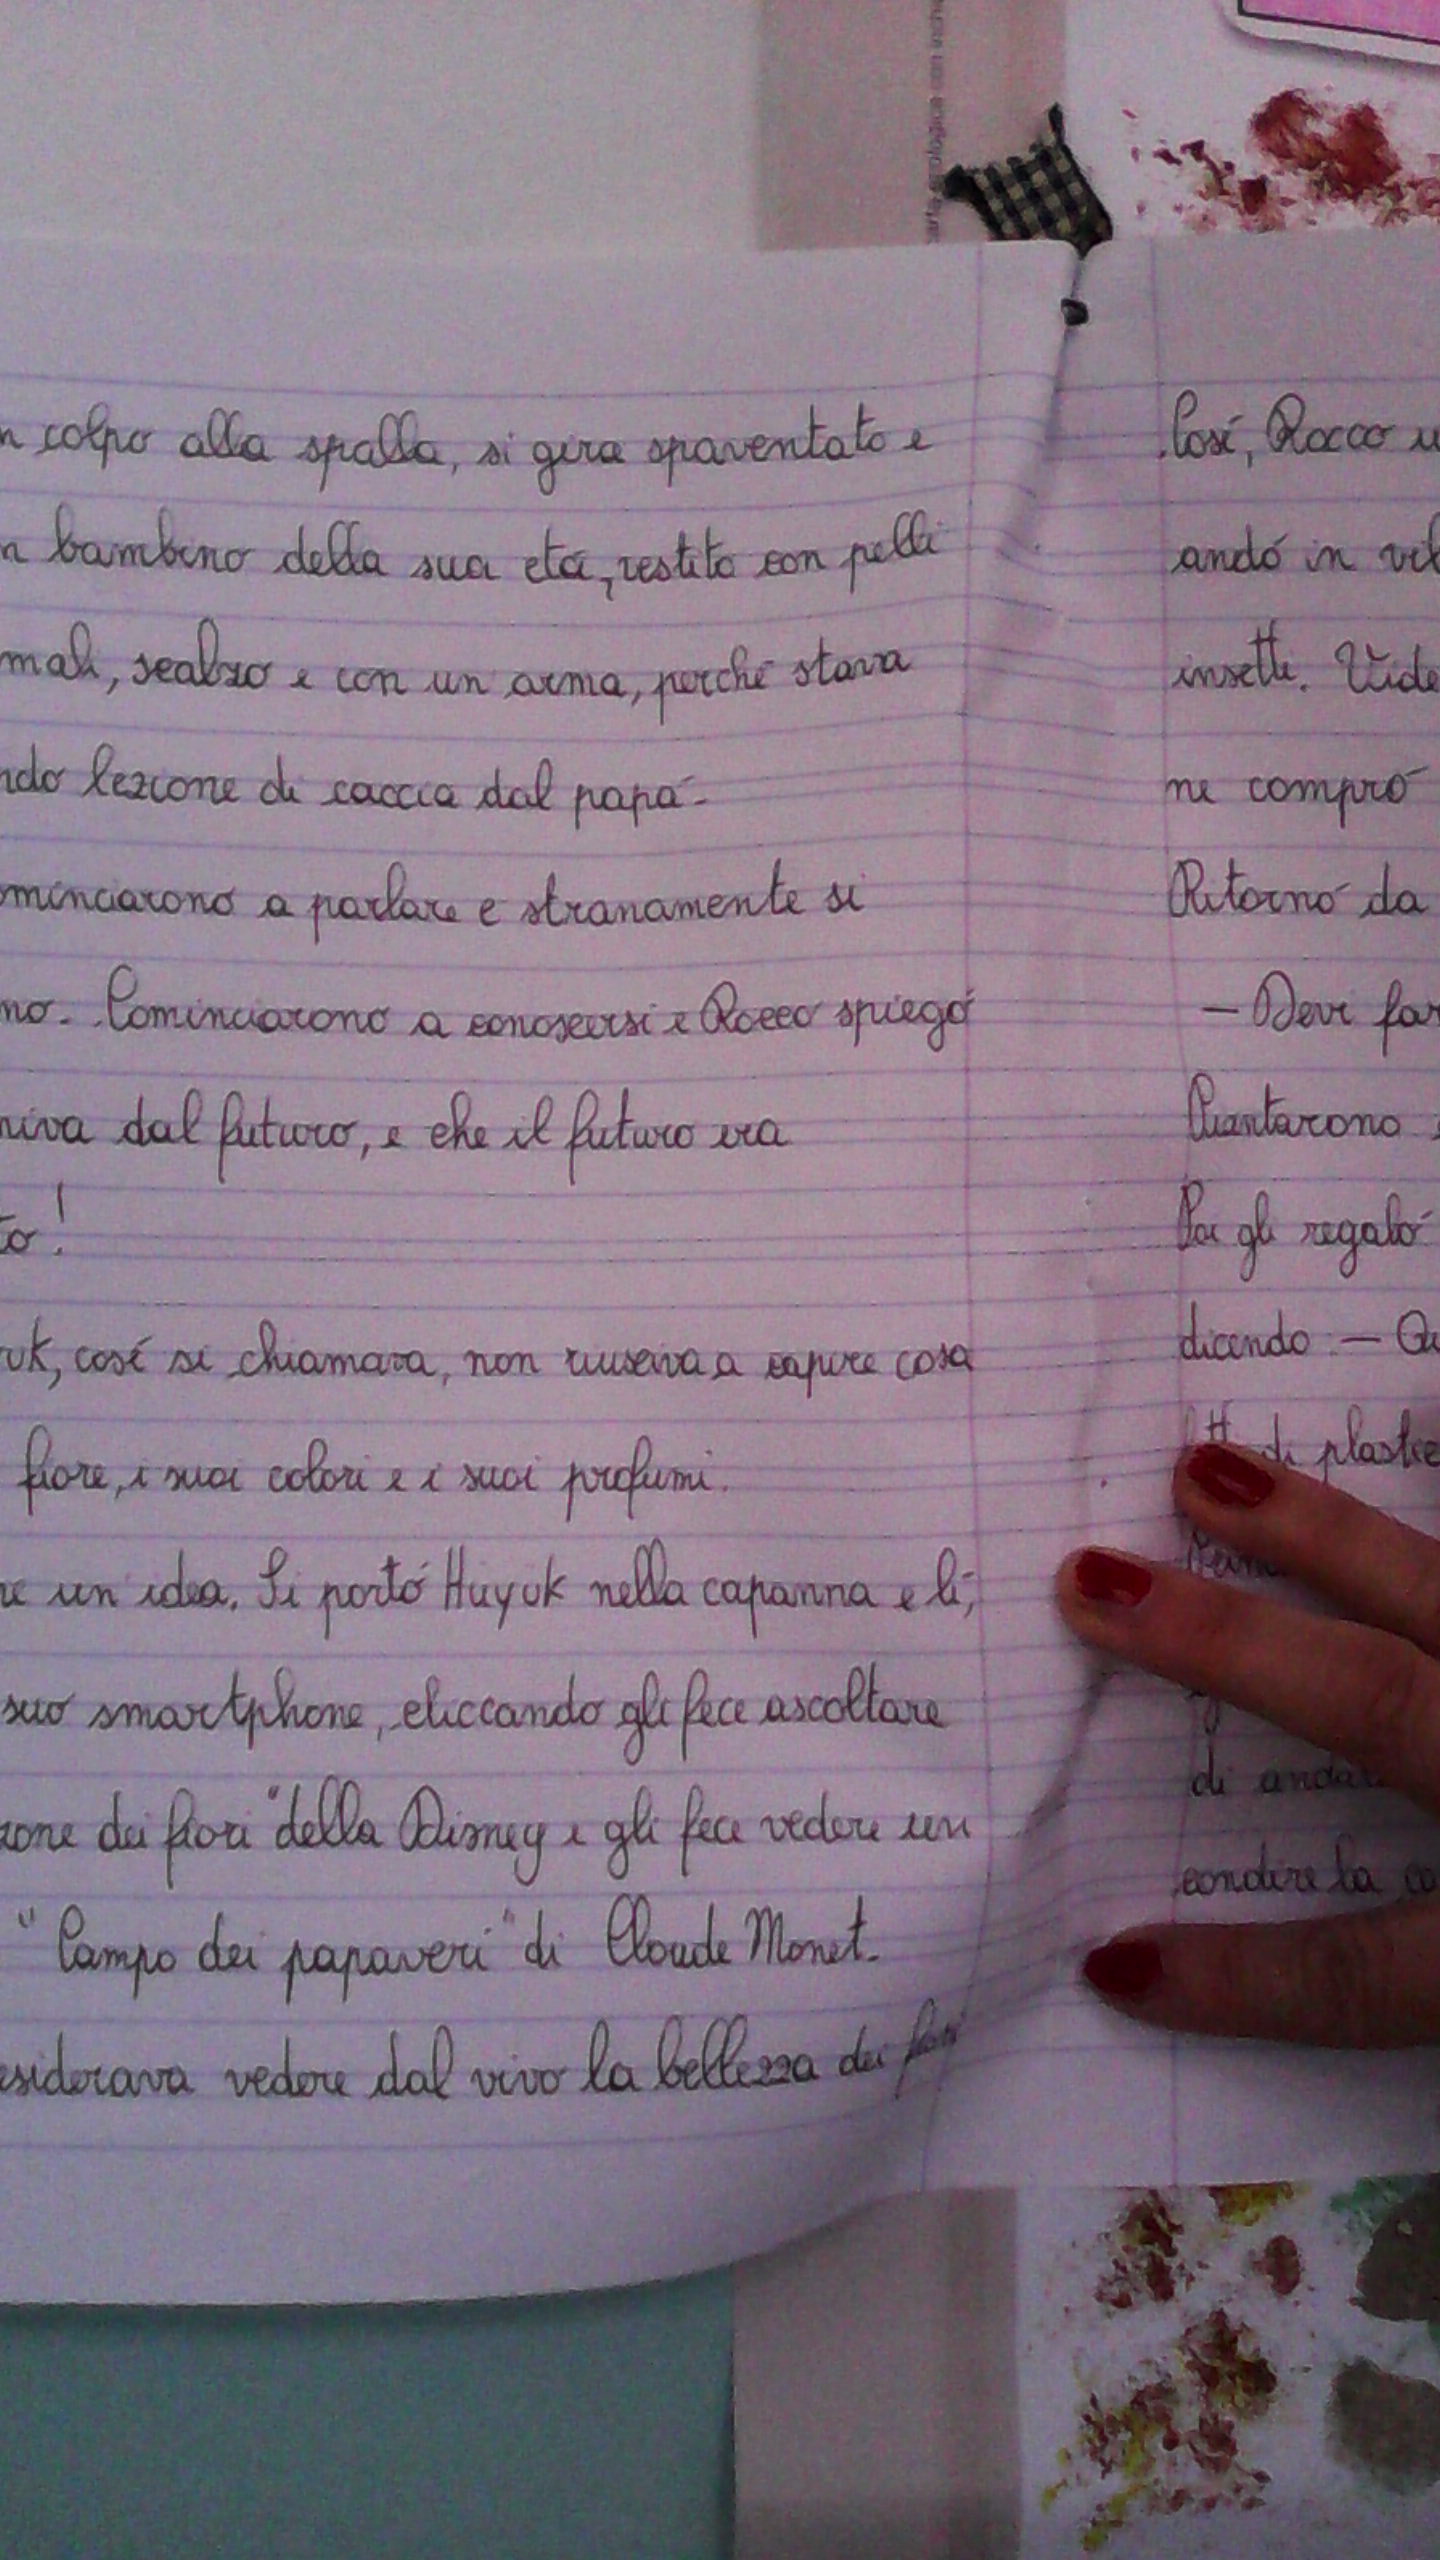 n colpo alla spalla, si gira spaventato e
n bambino della sua etá, vestito con pelli
mali, scalzo e con un arma, perché stava
ndo lezione di caccia dal papá.
ominciarono a parlare e stranamente si
no. Cominciarono a conoscersi e Rocco spiegó
niva dal futuro, e che il futuro era
to!
uk, cosí si chiamava, non riusciva a capire cosa
fiore, i suoi colori e i suoi profumi.
ne un idea. Si portó Huyuk nella capanna e lí,
suo smartphone, cliccando gli fece ascoltare
zone dei fiori" della Disney e gli fece vedere un
"Campo dei papaveri" di Claude Monet.
esiderava vedere dal vivo la bellezza dei fiori
Cosí, Rocco u
andó in vil
insetti. Vide
ne compró
Ritornó da
— Devi far
Piantarono
Poi gli regaló
dicendo: — Qu
di plastic
di andar
condire la co